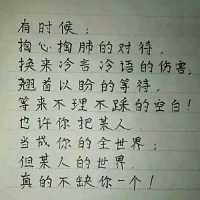 有时候；
掏心掏肺的对待，
换来冷言冷语的伤害，
翘首以盼的等待，
等来不理不踩的空白！
也许你把某人
当成你的全世界；
但某人的世界，
真的不缺你一个！